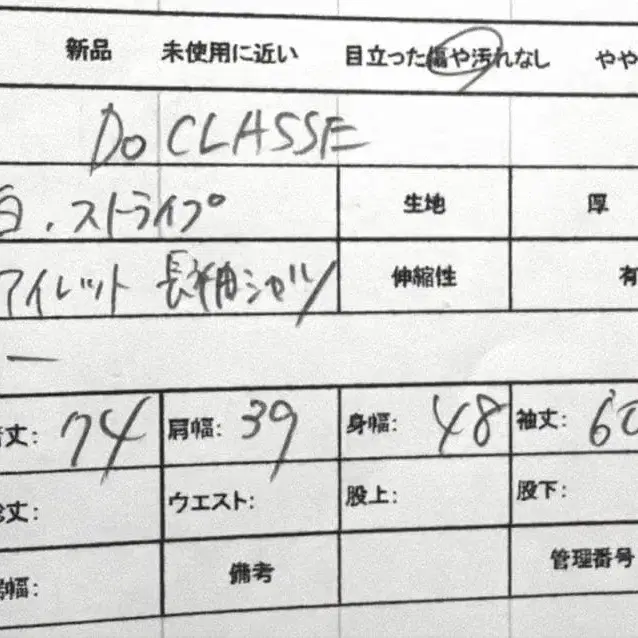 新品 未使用に近い 目立った傷や汚れなし やや
Do CLASSE
白、ストライプ 生地 厚
アイレット 長袖シャツ 伸縮性 有
着丈: 74 肩幅: 39 身幅: 48 袖丈: 60
総丈: ウエスト: 股上: 股下:
幅: 備考 管理番号